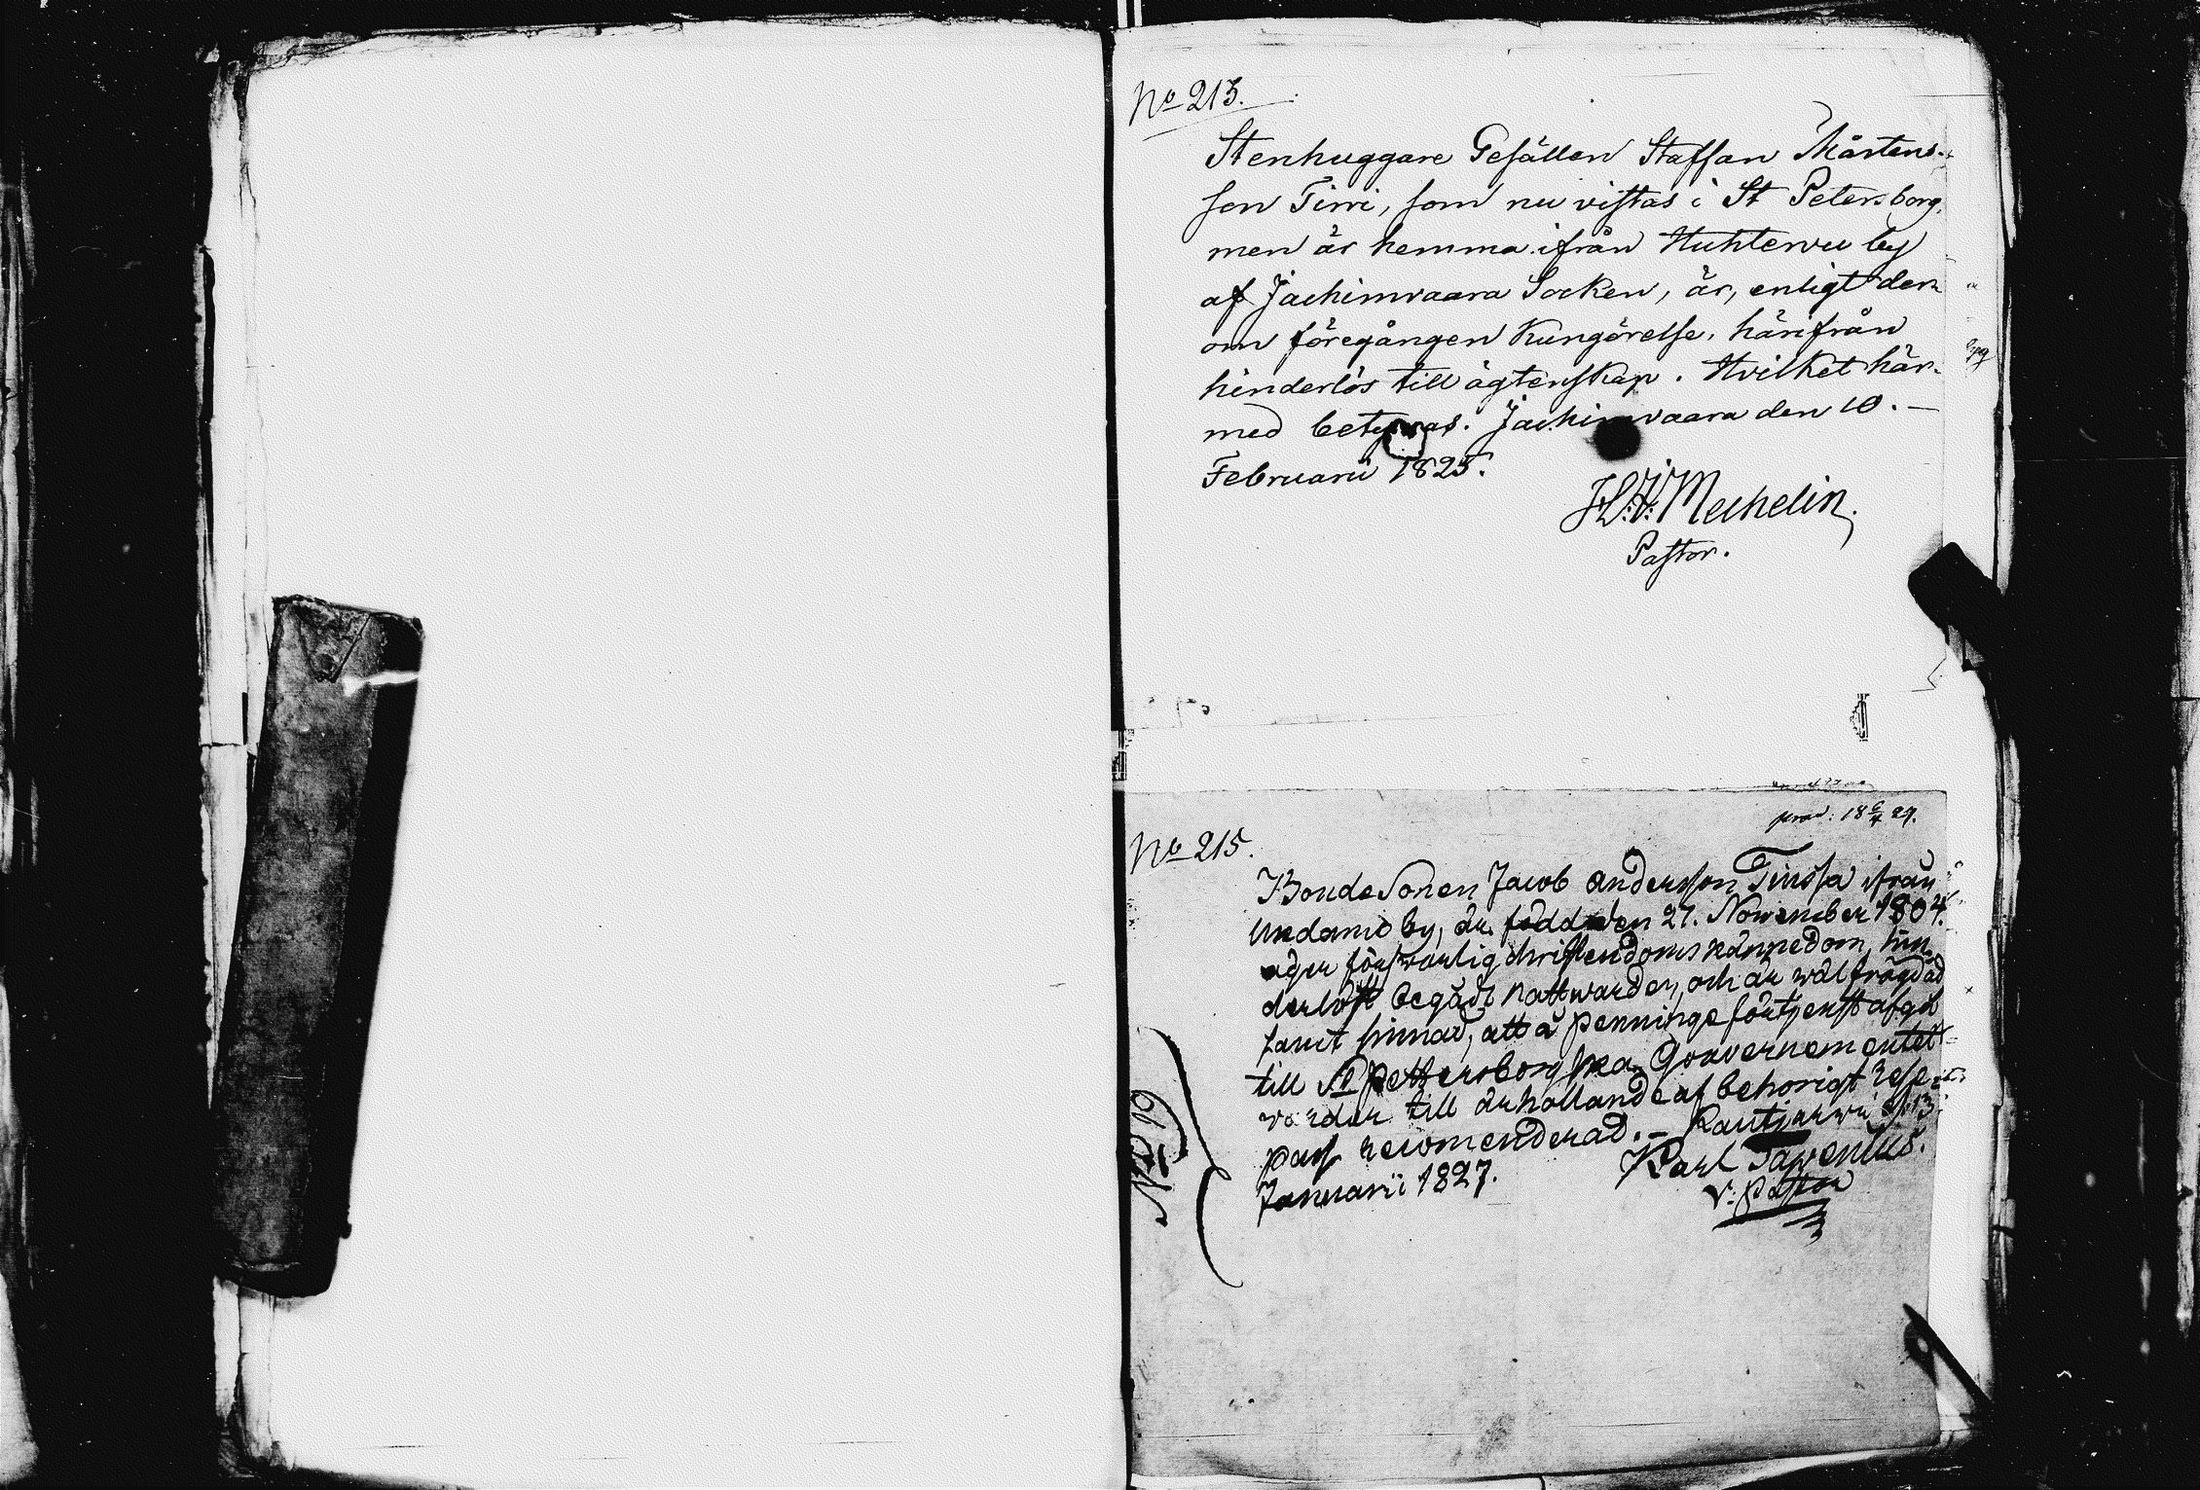 No 213.
Stenhuggare Gesällen Staffan Mårtens-
son Tirri, som nu vistas i St Petersborg,
men är hemma ifrån Huhtervu by
af Jachimvaara Socken, är, enligt der-
om föregången Kungörelse, härifrån
hinderlös till ägtenskap. Hvilket här-
med betygas. Jachimvaara den 10.
Februarii 1825.
Mechelin.
Pastor.
prod: 18 29.
No 215.
BondeSonen Jacob Andersson Tinssa ifrån
by, är född den 27. November 1804.
äger försvarlig christendoms kännedom, hin-
derlöst begådt nattwarden, och är wälfrägdad
samt sinnad, att å penninge förtjenst afgå
till St Pettersborgska Gouvernementet
warder till ärhållande af behörigt Rese-
pass recomenderad. – Rautjärwi d 13
Januarii 1827.
Karl Tawenius.
V: Pastor
No 19